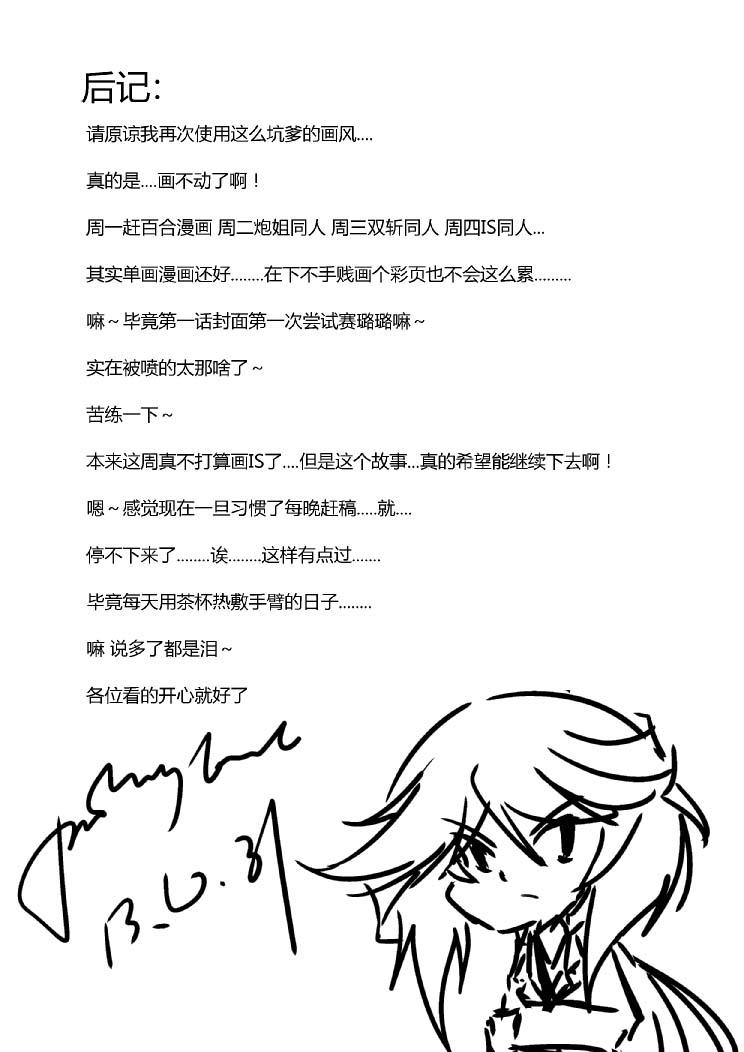 后记：
请原谅我再次使用这么坑爹的画风....
真的是....画不动了啊！
周一赶百合漫画 周二炮姐同人 周三双斩同人 周四IS同人...
其实单画漫画还好........在下不手贱画个彩页也不会这么累.........
嘛～毕竟第一话封面第一次尝试赛璐璐嘛～
实在被喷的太那啥了～
苦练一下～
本来这周真不打算画IS了....但是这个故事...真的希望能继续下去啊！
嗯～感觉现在一旦习惯了每晚赶稿.....就....
停不下来了........诶........这样有点过.......
毕竟每天用茶杯热敷手臂的日子........
嘛 说多了都是泪～
各位看的开心就好了